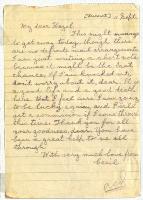 (Dunoon?) 11 Sept.
My dear Hazel,
This might manage
to get away today, though there
are no definite mail arrangements
I am just writing a short note
because it might be the last
chance. If I am knocked out,
don't worry about it, dear. It is
a good life and a good death
here. But I feel sure I am going
to be lucky again, and I will
get a commission if I come through
this time. Thank you for all
your goodness, dear. You have
been a great help to me all
through.
With very much love from
Basil